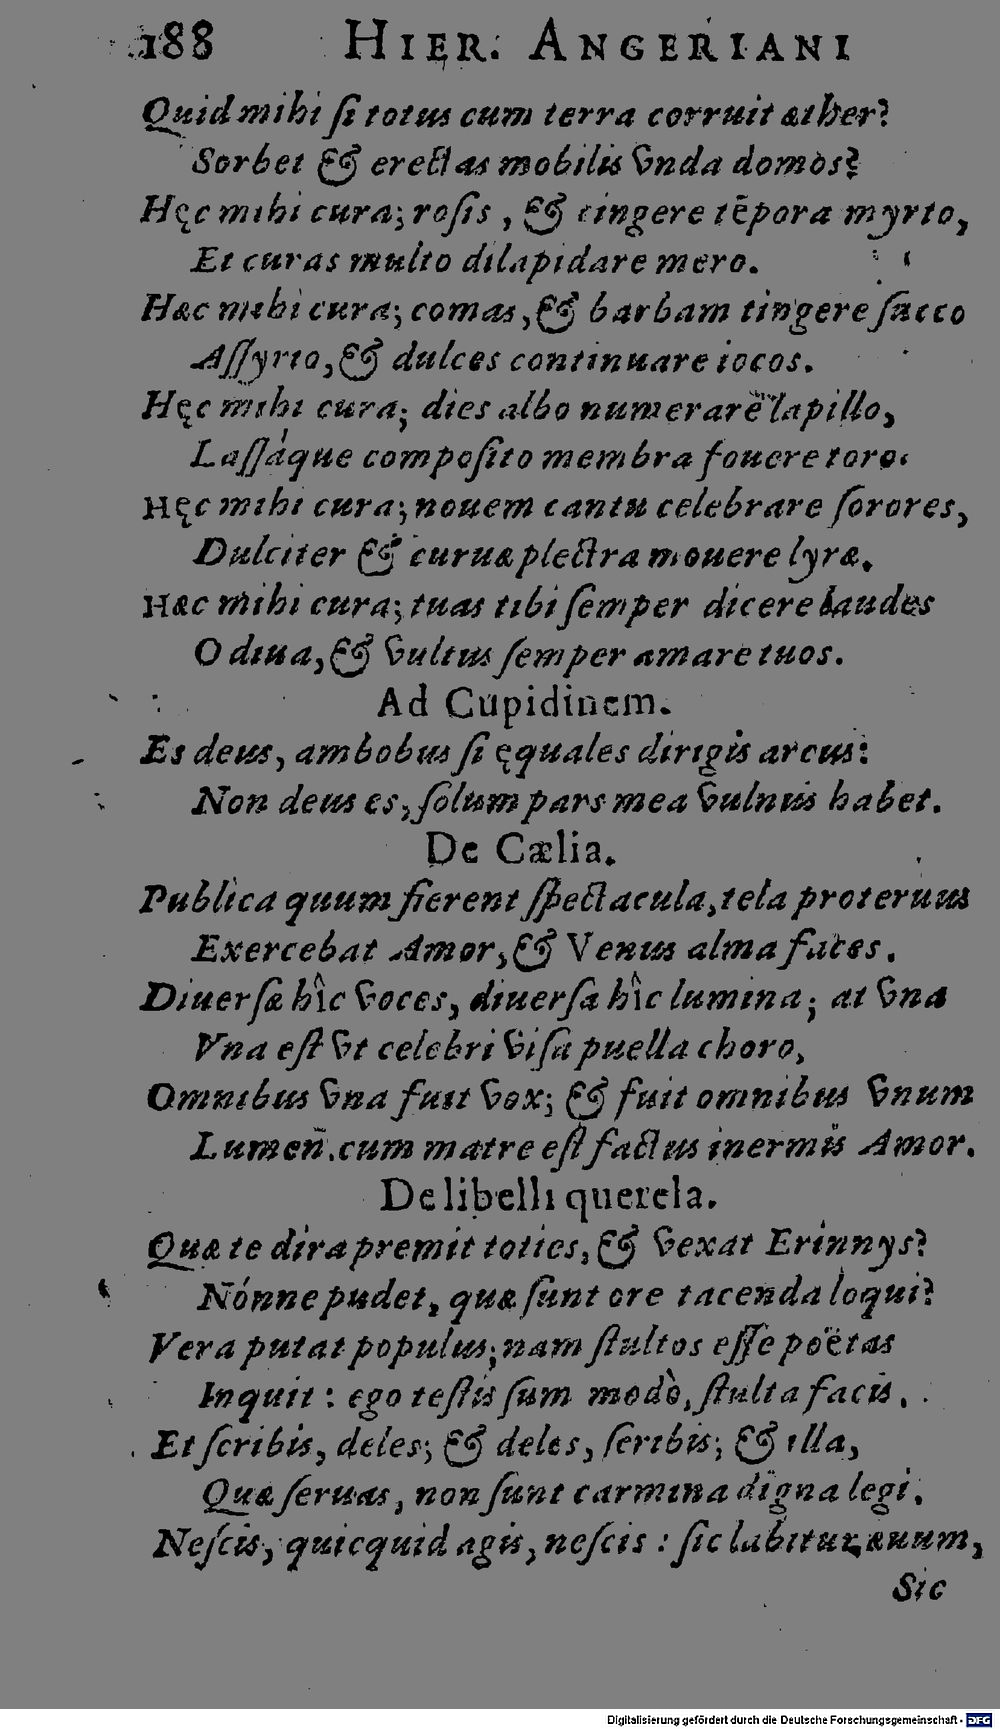 188 HIER. ANGERIANI
Quid mihi ſi totus cum terra corruit æther?
Sorbet & erectas mobilis vnda domos?
Hęc mihi cura; roſis, & cingere tēpora myrto,
Et curas multo dilapidare mero.
Hæc mihi cura; comas, & barbam tingere ſucco
Aſſyrio, & dulces continuare iocos.
Hęc mihi cura; dies albo numerare lapillo,
Laſſáque compoſito membra fouere toro.
Hęc mihi cura; nouem cantu celebrare ſorores,
Dulciter & curuæ plectra mouere lyræ.
Hæc mihi cura; tuas tibi ſemper dicere laudes
O diua, & vultus ſemper amare tuos.
Ad Cupidinem.
Es deus, ambobus ſi ęquales dirigis arcus:
Non deus es, ſolum pars mea vulnus habet.
De Cælia.
Publica quum fierent ſpectacula, tela proteruus
Exercebat Amor, & Venus alma faces.
Diuerſæ hîc voces, diuerſa hîc lumina; at vna
Vna eſt vt celebri viſa puella choro,
Omnibus vna fuit vox; & fuit omnibus vnum
Lumen. cum matre eſt factus inermis Amor.
De libelli querela.
Quæ te dira premit toties, & vexat Erinnys?
Nónne pudet, quæ ſunt ore tacenda loqui?
Vera putat populus; nam ſtultos eſſe poëtas
Inquit: ego teſtis ſum modò, ſtulta facis.
Et ſcribis, deles; & deles, ſcribis; & illa,
Quæ ſeruas, non ſunt carmina digna legi.
Neſcis, quicquid agis, neſcis: ſic labitur æuum,
Sic
Digitalisierung gefördert durch die Deutsche Forschungsgemeinschaft - DFG